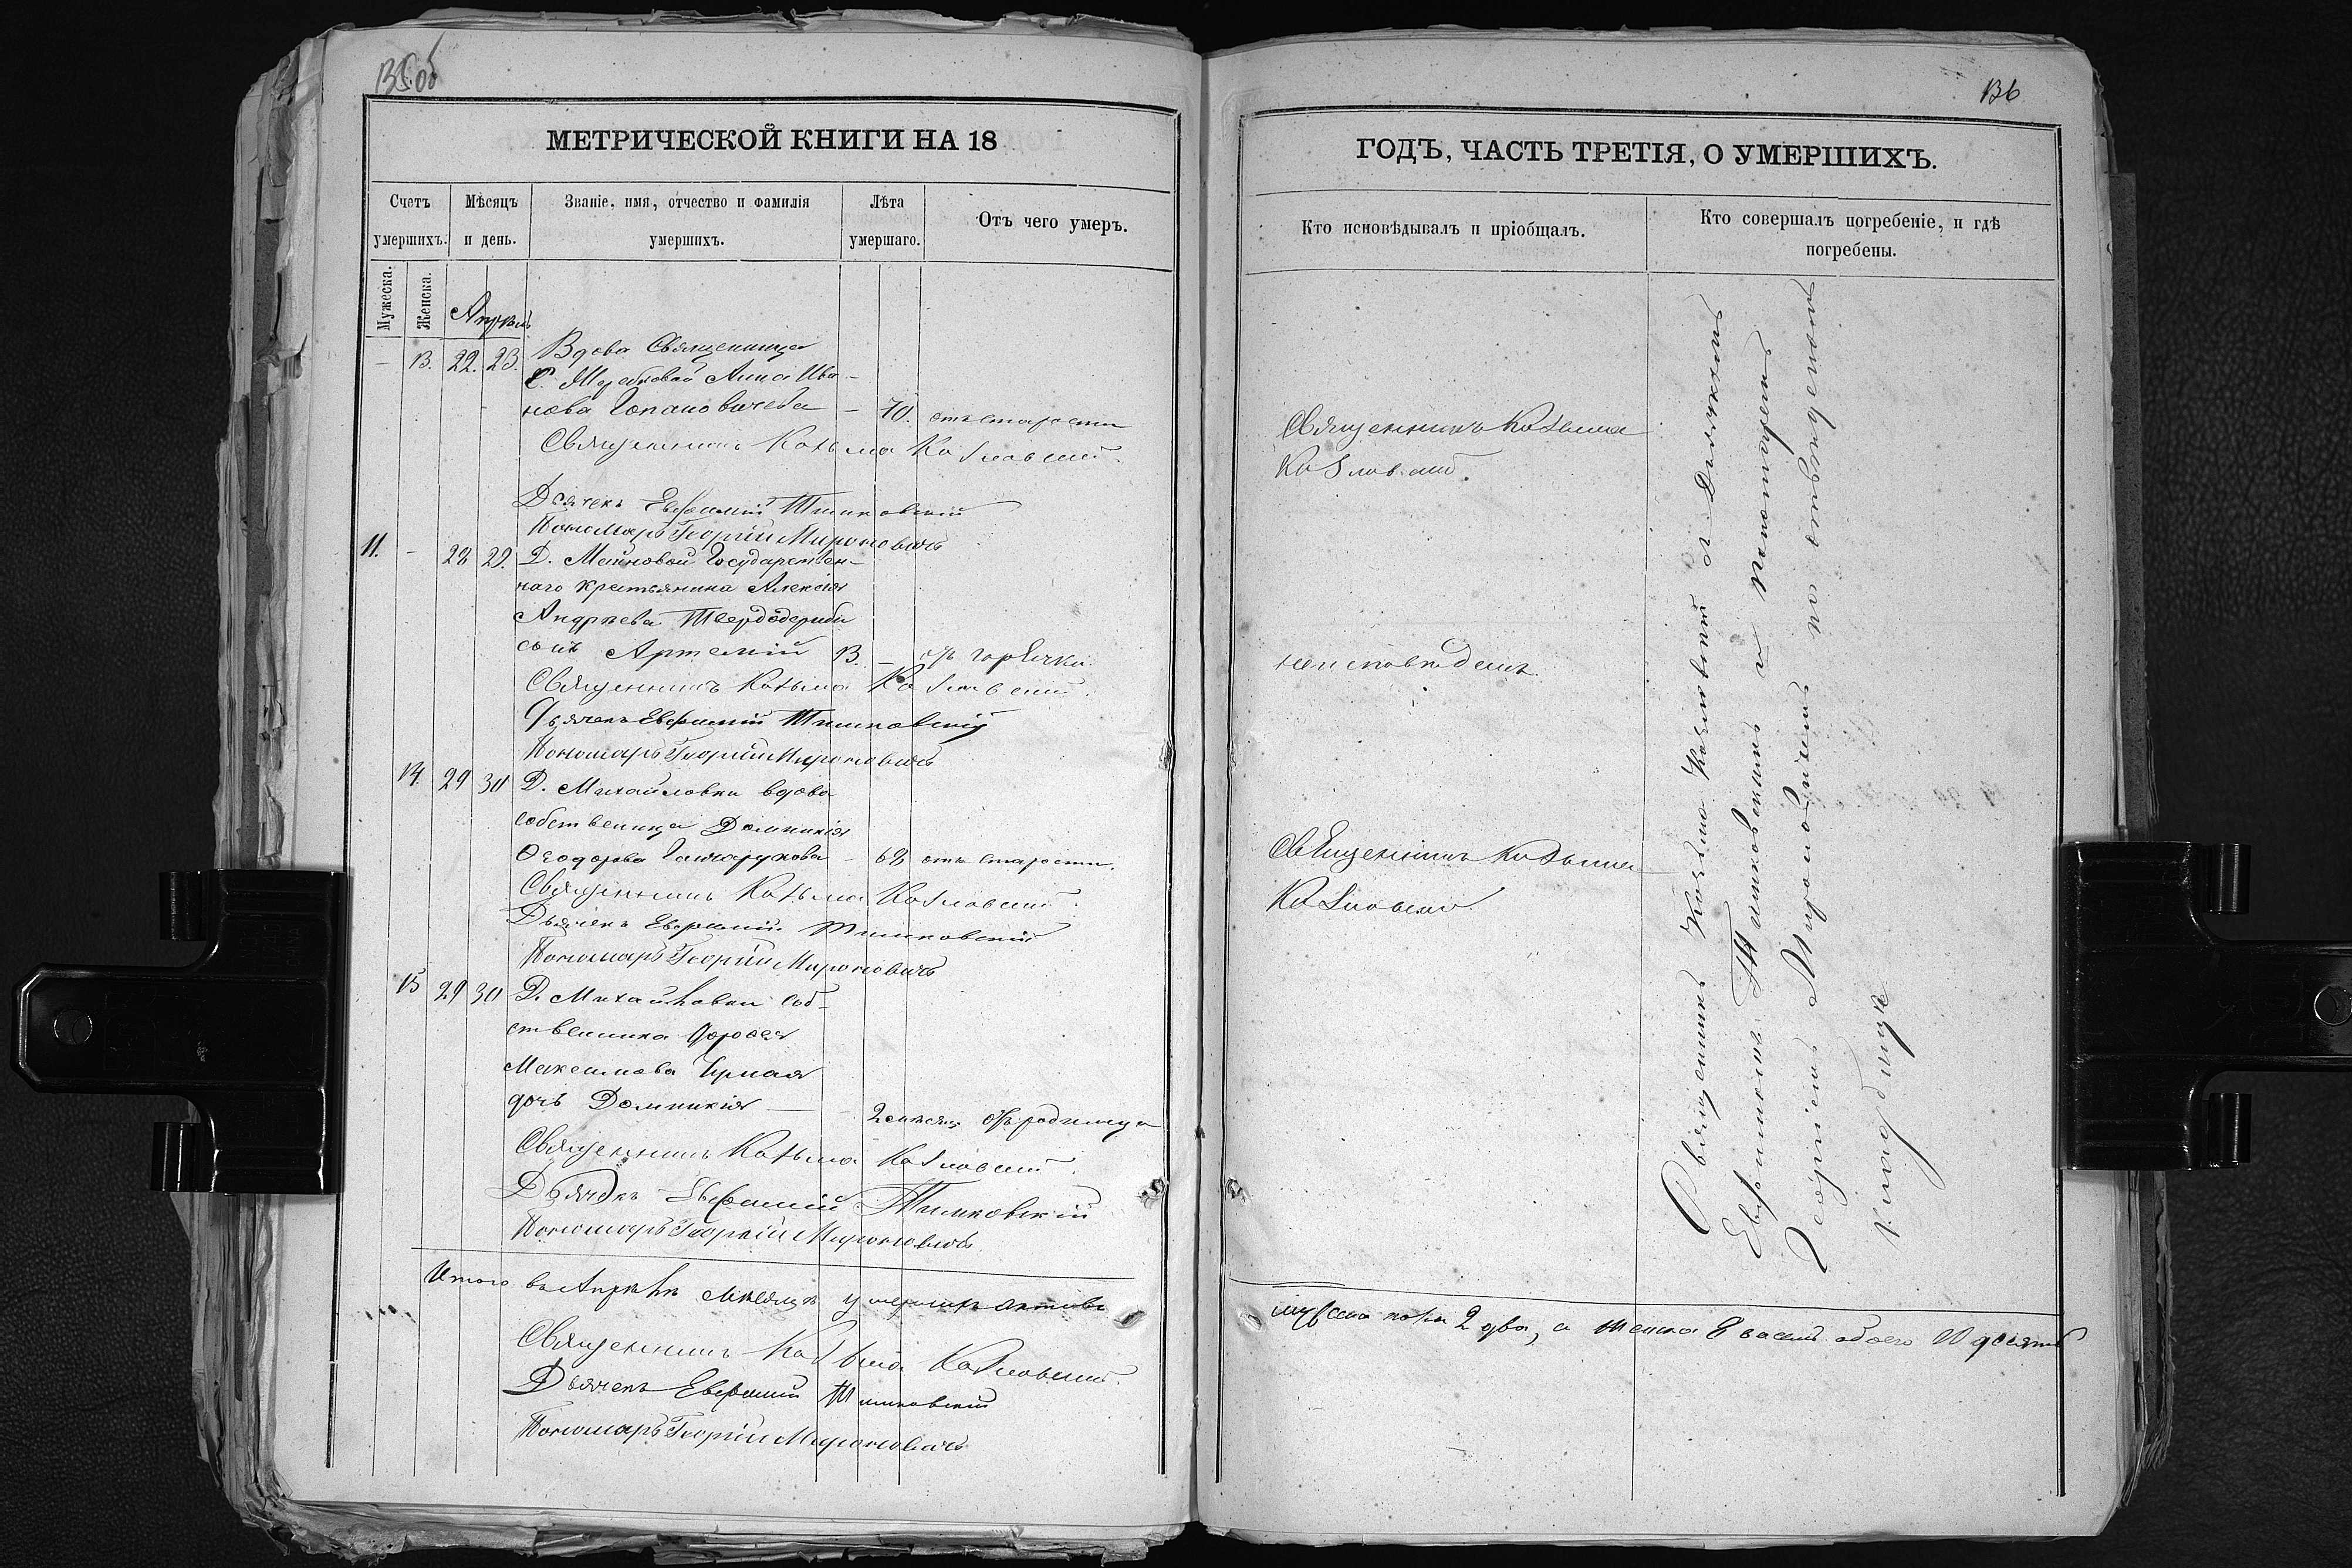 135об
МЕТРИЧЕСКОЙ КНИГИ НА 18
Счетъ умершихъ.
Мѣсяцъ и день.
Званіе, имя, отчество и фамилія умершихъ.
Лѣта умершаго.
Отъ чего умеръ.
Мужеска.
Женска.
Апрѣль
— 13. 22. 23. Вдова Священица
С. Анна Ива-
нова — 70. отъ старости
Священникъ Козьма Козловскій.
Дьячекъ Евфимій Тимковскій
Пономарь Георгій Мироновичъ
11. — 28 29. Д. Государствен-
наго крестьянина Алексія
Андреева
сынъ Артемій 13. — отъ горячки
Священникъ Козьма Козловскій.
Дьячекъ Евфимій Тимковскій
Пономарь Георгій Мироновичъ
14. 29 30 Д. Михайловки вдова
собственица Домникія
Ѳеодорова — 68 отъ старости.
Священникъ Козьма Козловскій.
Дьячекъ Евфимій Тимковскій
Пономарь Георгій Мироновичъ
15 29 30 Д. Михайловки соб-
ственика Дорофея
Максимова
дочь Домникія — 2 мѣсяц. отъ родимца
Священникъ Козьма Козловскій.
Дьячекъ Евфимій Тимковскій
Пономарь Георгій Мироновичъ
Итого въ Апрѣлѣ мѣсяцѣ умершихъ
Священникъ Козьма Козловскій.
Дьячекъ Евфимій Тимковскій
Пономарь Георгій Мироновичъ
136
ГОДЪ, ЧАСТЬ ТРЕТІЯ, О УМЕРШИХЪ.
Кто исповѣдывалъ и пріобщалъ.
Кто совершалъ погребеніе, и гдѣ
погребены.
Священникъ Козьма
Козловскій.
неисповѣданъ
Священникъ Козьма
Козловскій.
Священникъ Козьма Козловскій съ Дьячкомъ
Евфиміемъ Тимковскимъ и Пономаремъ
Георгіемъ Мироновичемъ на отведенномъ
кладбищѣ
мужеска пола 2 два, а женска 8 восемь обоего 10 десять